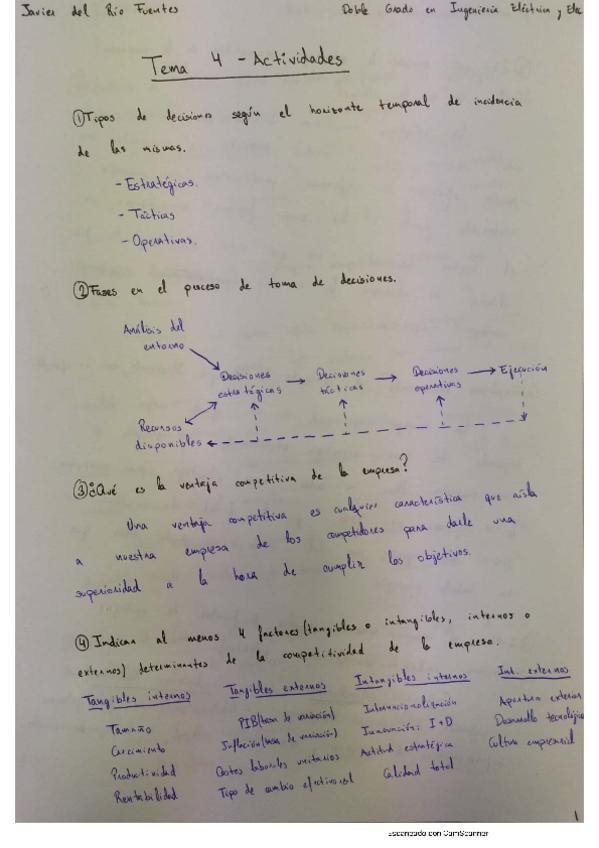 Javier del Río Fuentes
Doble Grado en Ingeniería Eléctrica y Ele
Tema 4 - Actividades
① Tipos de decisiones según el horizonte temporal de incidencia
de las mismas.
- Estratégicas.
- Tácticas
- Operativas.
② Fases en el proceso de toma de decisiones.
Análisis del
entorno
Decisiones
estratégicas
Decisiones
tácticas
Decisiones
operativas
Ejecución
Recursos
disponibles
③ ¿Qué es la ventaja competitiva de la empresa?
Una ventaja competitiva es cualquier característica que aisla
a nuestra empresa de los competidores para darle una
superioridad a la hora de cumplir los objetivos.
④ Indican al menos 4 factores (tangibles o intangibles, internos o
externos) determinantes de la competitividad de la empresa.
Tangibles internos
Tamaño
Crecimiento
Productividad
Rentabilidad
Tangibles externos
PIB (tasa de variación)
Inflación (tasa de variación)
Costes laborales unitarios
Tipo de cambio efectivo real
Intangibles internos
Internacionalización
Innovación: I+D
Actitud estratégica
Calidad total
Int. externos
Apertura exterior
Desarrollo tecnológico
Cultura empresarial
1
Escaneado con CamScanner